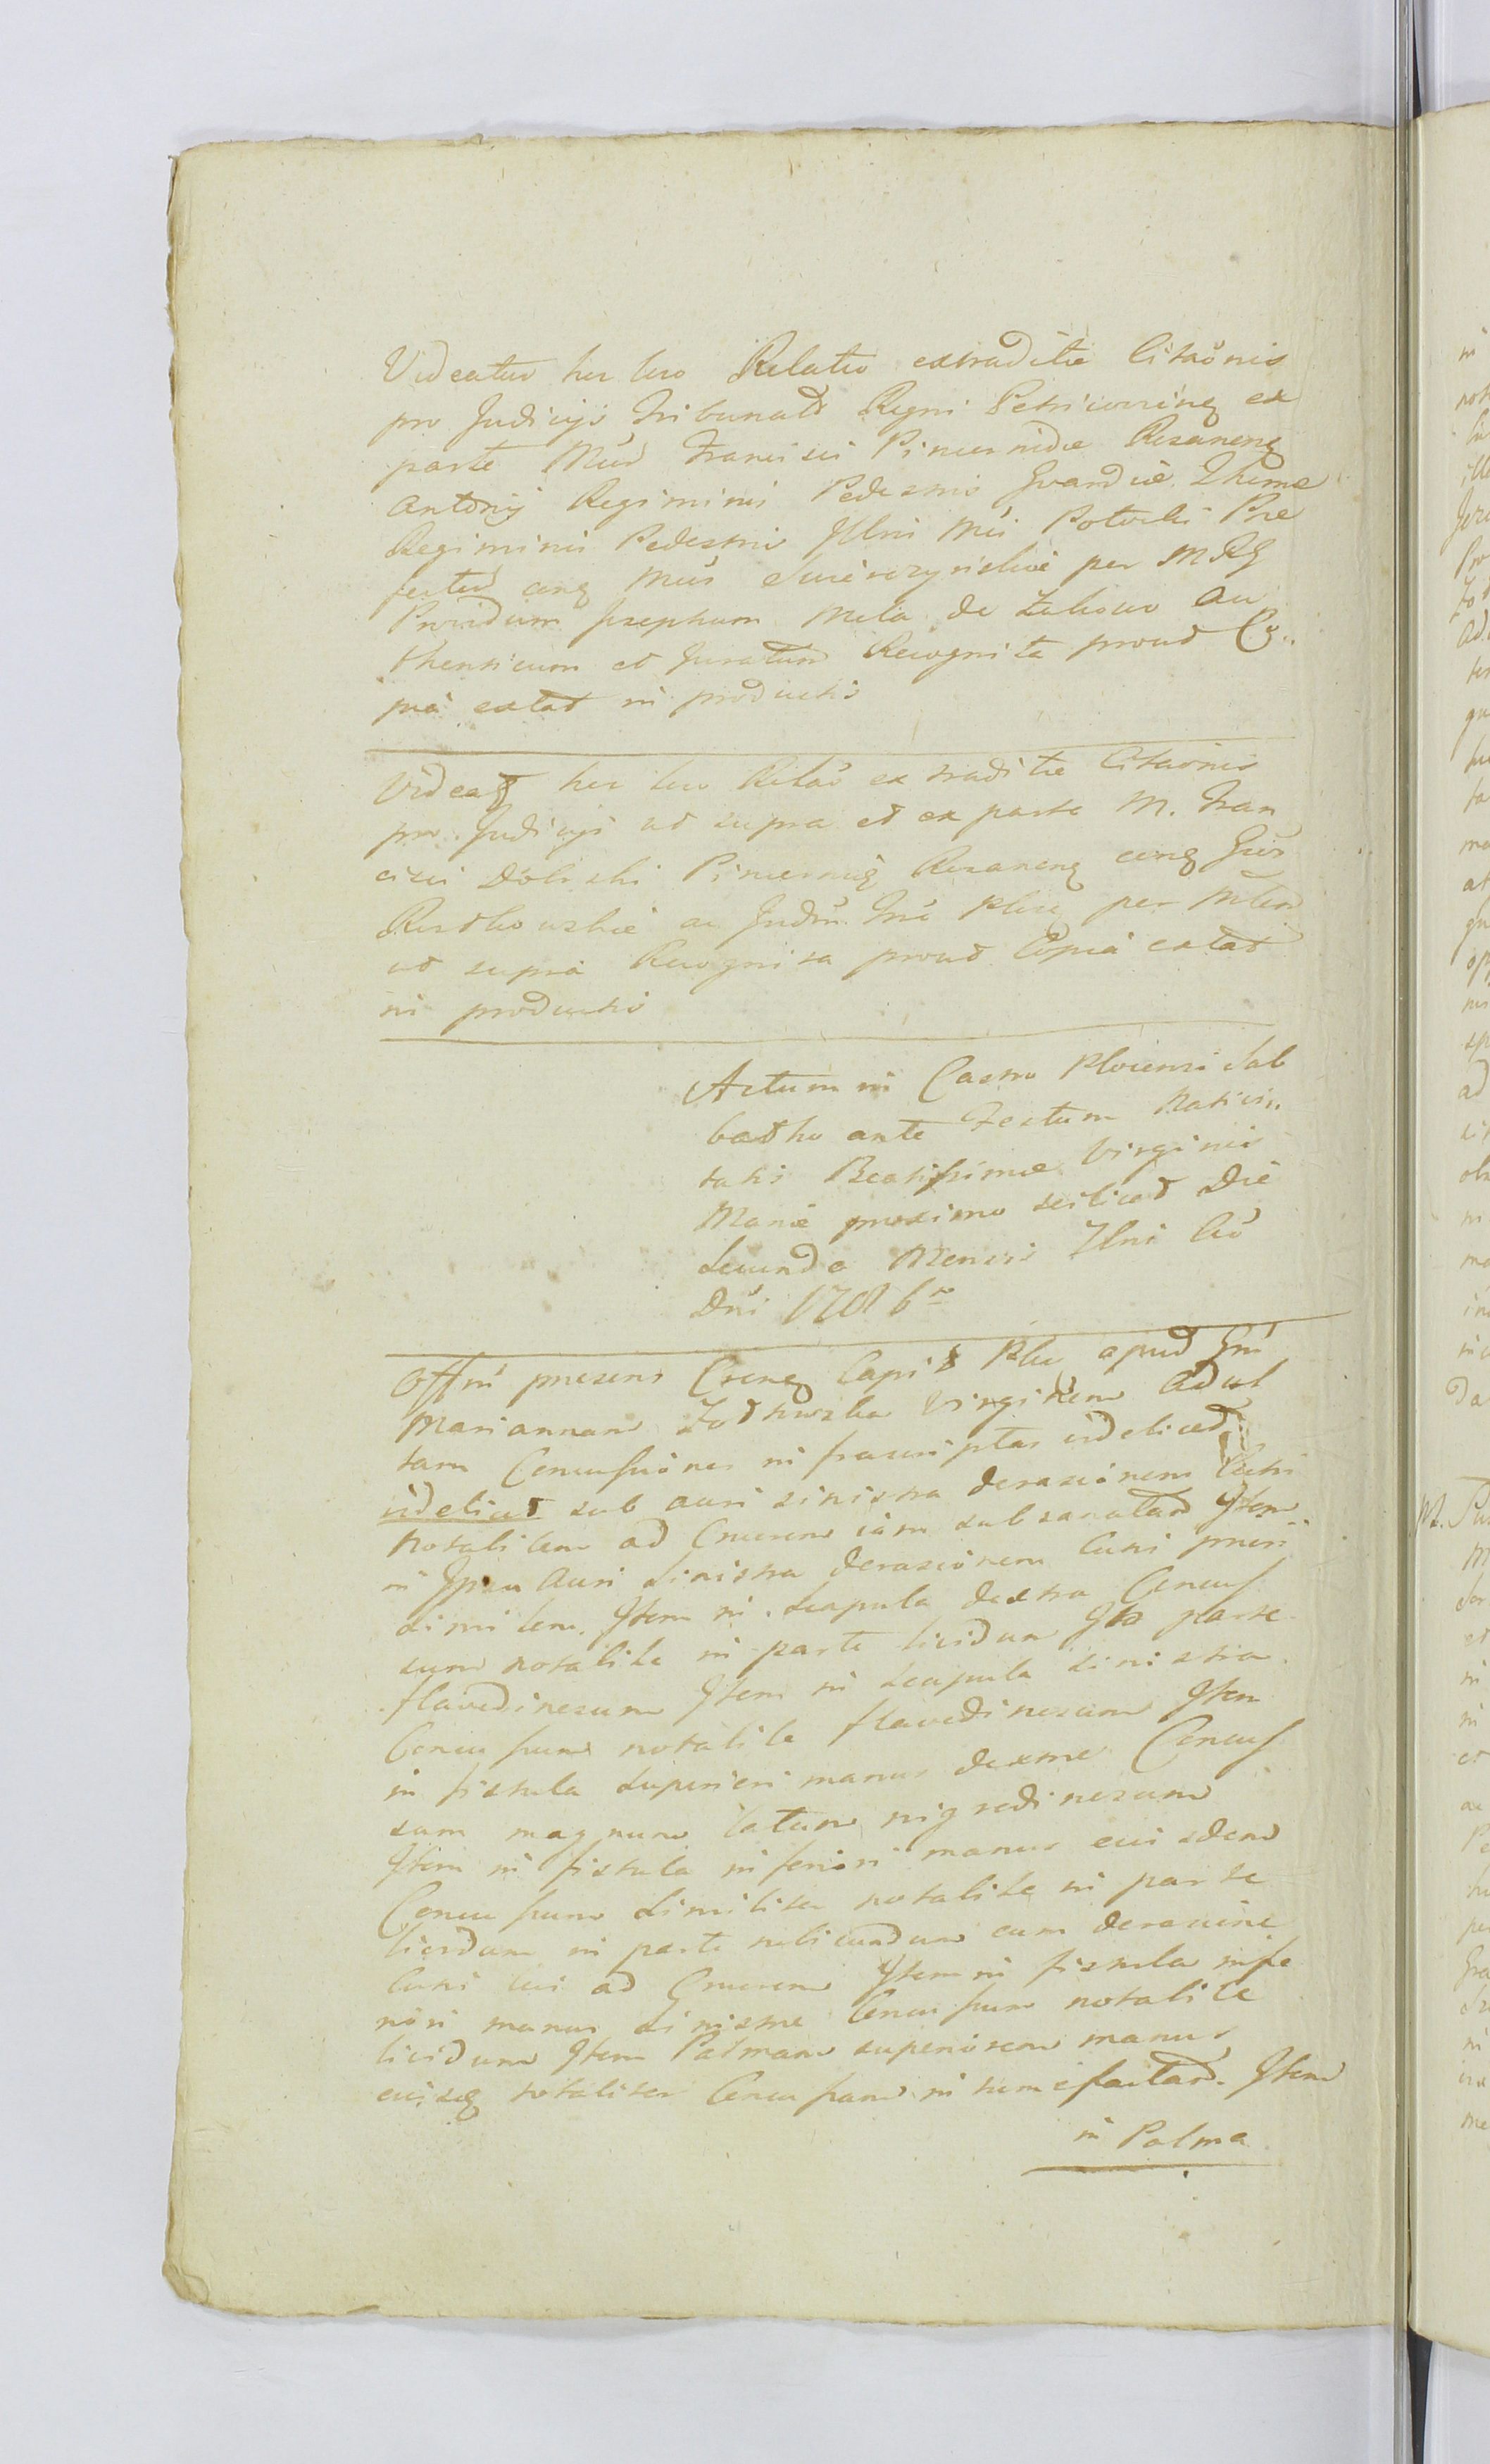 Videatur hic loco Relatio extraditæ Citaõnis
pro Judicijs Tribunalt Regni Petricovieng ex
parte Mcoȓ Francisci Pincernidæ Rozaneng
Antonij Regiminis Pedestris Gvardiæ Thomæ
Regiminis Pedestris Illni Mci Potocki Præ
fectoȓ cong Mcos per MRG
Providum Josephum Mela de Au
thenticum et Juratum Recognita prout Co..
pia extat in productis
Videat hic loco Relaõ extraditæ Citaõnis
pro Judicijs ut supra et ex parte M. Fran
cisci Dobrski Pincernig Rozaneng cong Gros
ac Jud per Mlem
ut supra Recognita prout Copia extat
in productis
Actum in Castro Plocensi Sab
batho ante Festum Nativi..
tatis Beatissimæ Virginis
Mariæ proximo scilicet Die
Secunda Mensis 7bris Aõ
Dni 1786to
Offm præsens Creng Capit Ploc apud Gm
Mariannam Virginem Adul
tam Concussiones infrascriptas videlicet
videlicet sub auri sinistra derasionem Cutis
notabilem ad Cruorem iam subsanatam Item
in Ipsa Auri Sinistra derasionem Cutis priori
similem. Item in Scapula dextra Concus
sum notabile in parte lividum Ita parte
flavedinosum Item in Scapula sinistra
Concussum notabile flavedinosum Item
in fistula superiori manus dextræ Concus
sum magnum latum nigredinosum
Item in fistula inferiori manus eiusdem
Concussum similiter notabile in parte
lividum in parte rubicundum cum derasione
Cutis sui ad Cruorem Item in fistula infe
riori manus sinistræ Concussum notabile
lividum Item Palmam superiorem manus
eiusg notabiliter Concussam intumefactam. Item
in Palma